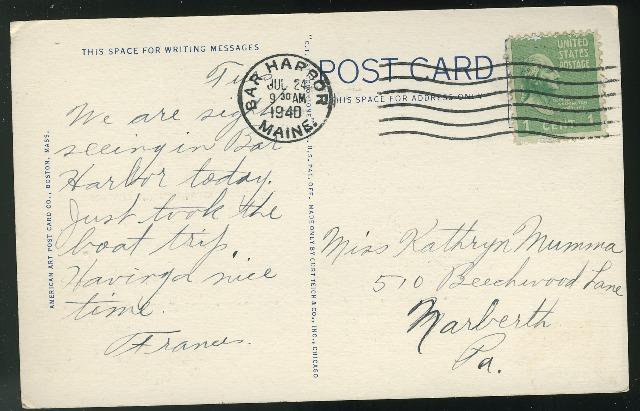 THIS SPACE FOR WRITING MESSAGES
POST CARD
THIS SPACE FOR ADDRESS ONLY
BAR HARBOR
JUL 24
9 30 AM
1940
MAINE
UNITED
STATES
POSTAGE
1 CENT 1
We are
seeing in Bar
Harbor today.
Just took the
boat trip.
Having a nice
time.
Frances.
Miss Kathryn Mumma
510 Beechwood Lane
Narberth
Pa.
AMERICAN ART POST CARD CO., BOSTON, MASS.
U.S. PAT. OFF. MADE ONLY BY CURT TEICH & CO., INC., CHICAGO